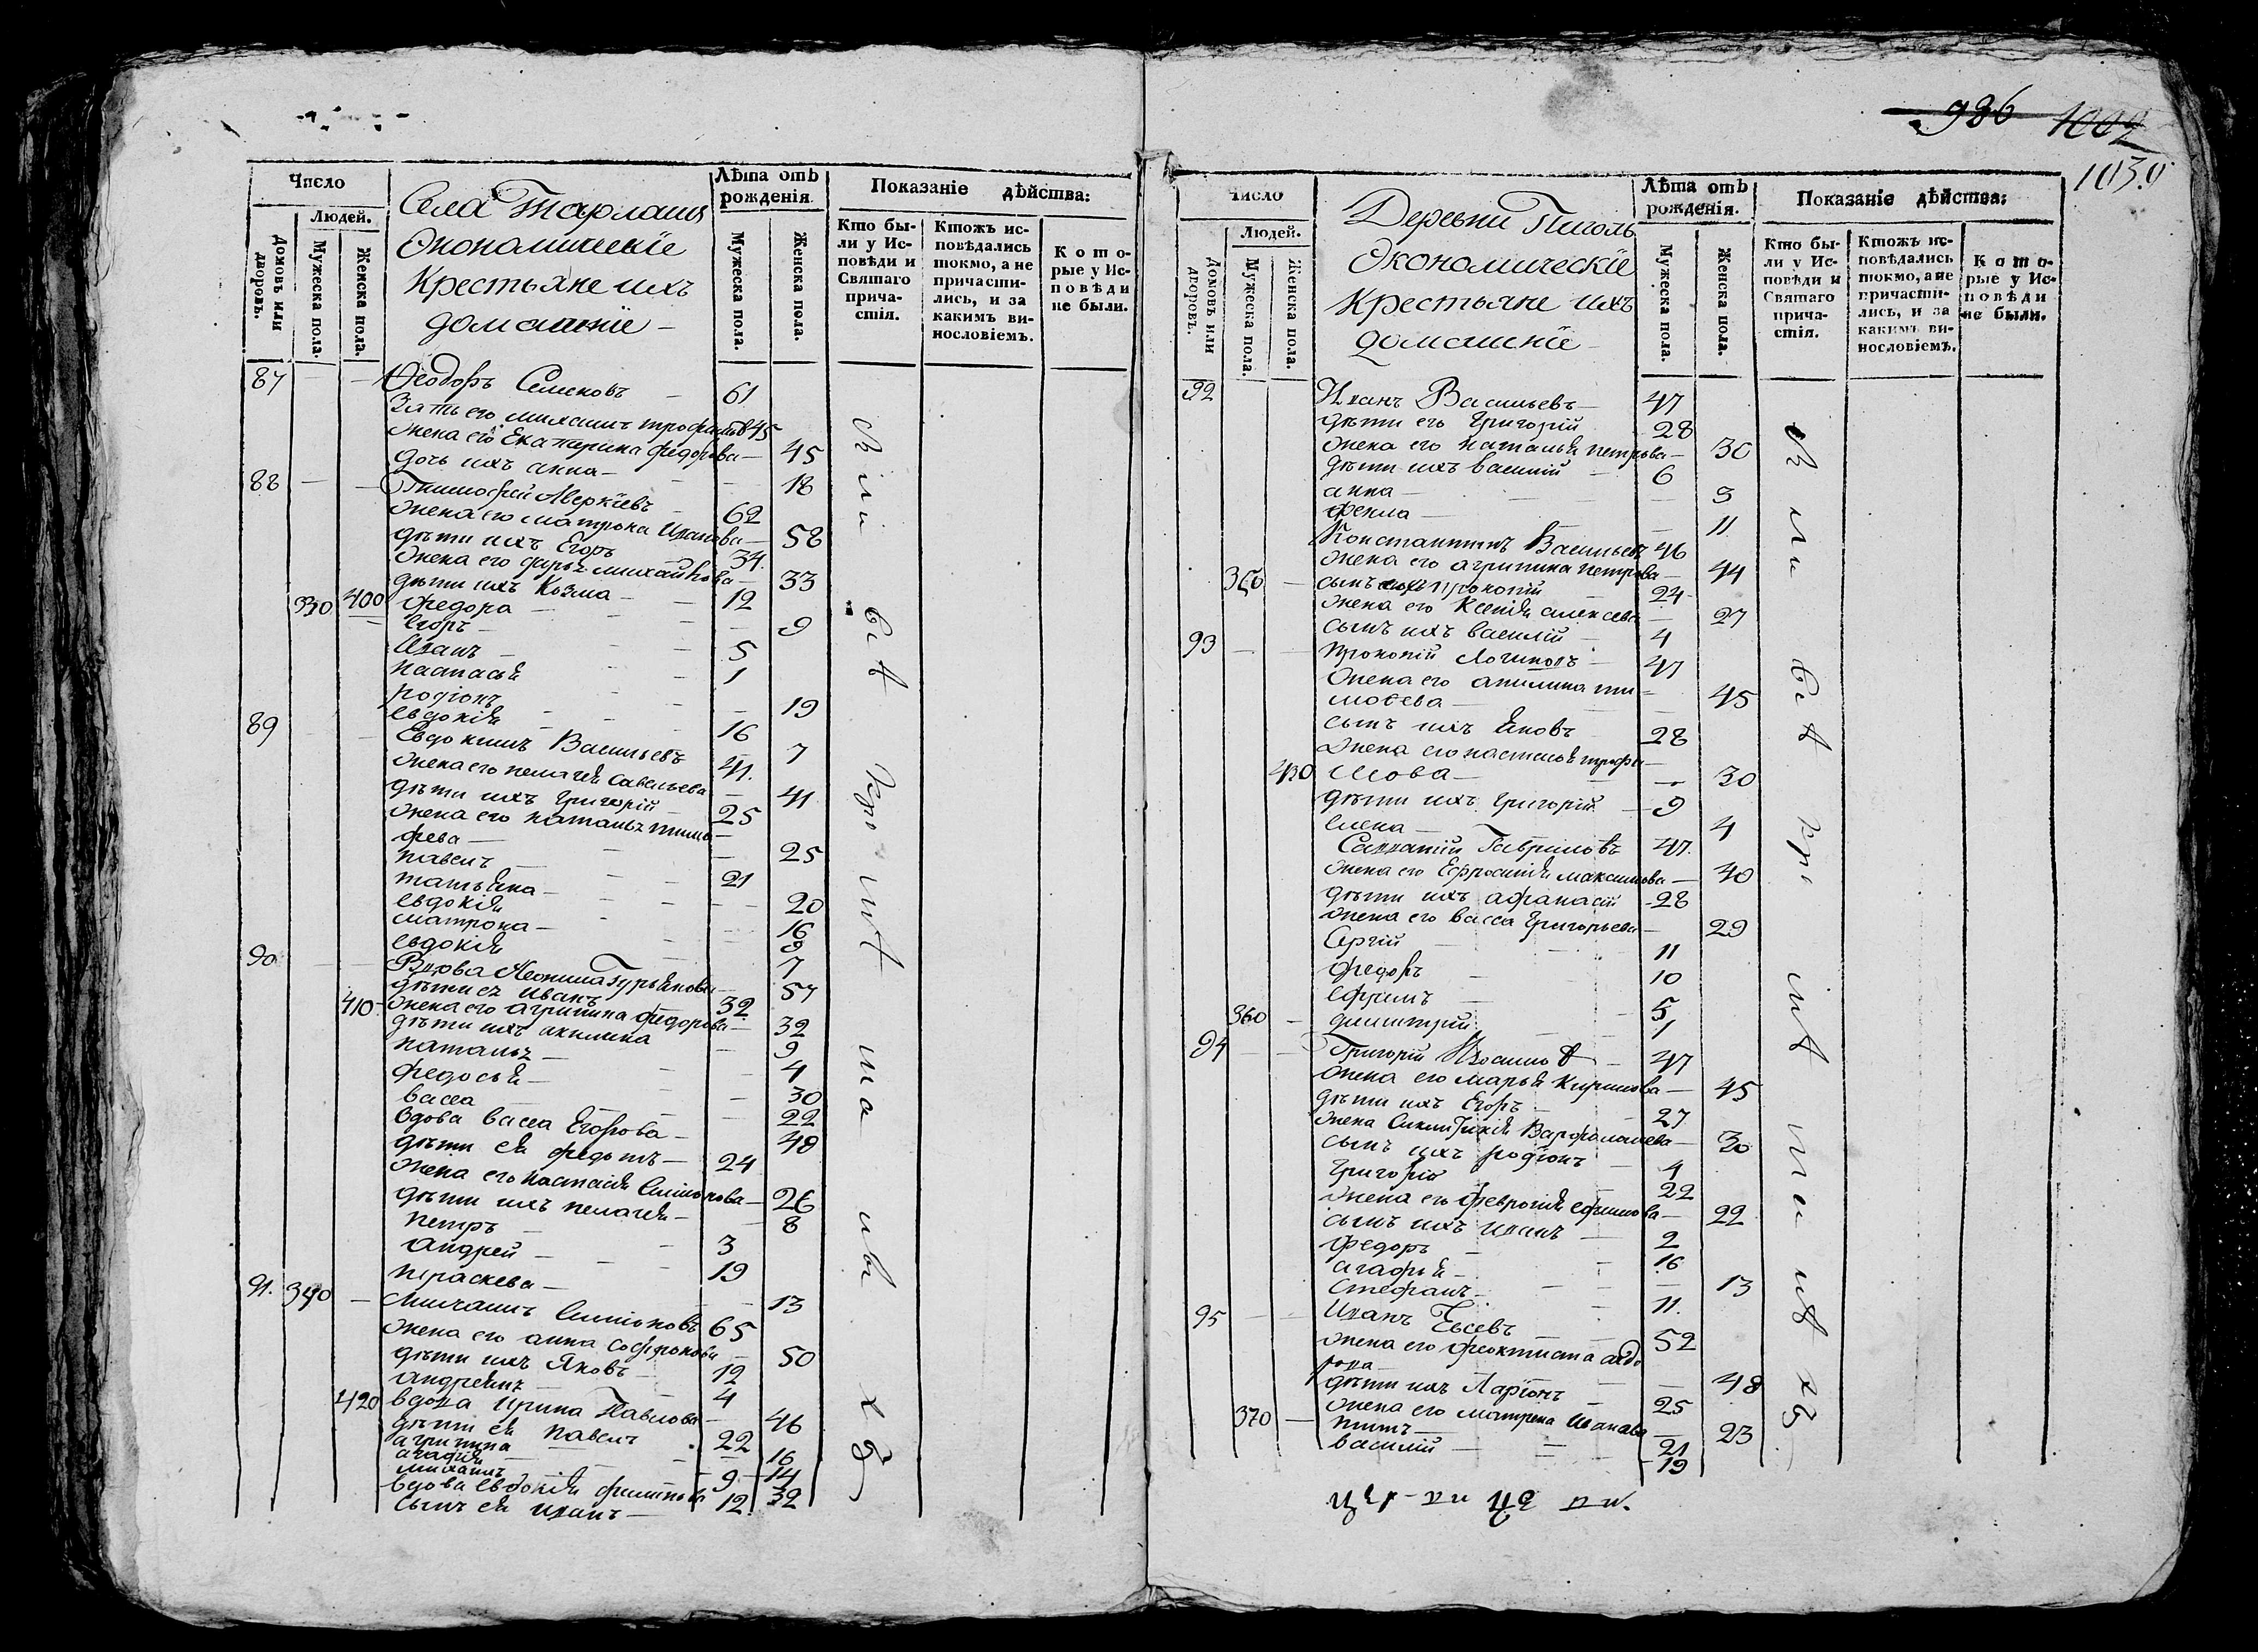 986 1002
1030
Число
Людей.
Домовъ или дворовъ.
Мужеска пола.
Женска пола.
Села Тарлаши
Экономическіе
Крестьяне ихъ
домашніе
Лѣта отъ рожденія.
Мужеска пола.
Женска пола.
Показаніе дѣйства:
Кто бы-
ли у Ис-
повѣди и
Святаго
прича-
стія.
Ктожъ ис-
повѣдались
токмо, а не
причасти-
лись, и за
какимъ ви-
нословіемъ.
Кото-
рые у Ис-
повѣди
не были.
87 Ѳеодоръ Семеновъ 61
Зять его михаилъ трофимовъ 45
жена его Екатерина федорова 45
дочь ихъ анна 18
88 Тимофей Аверкіевъ 62
жена его матрона Иванова 58
дѣти ихъ Егоръ 34
жена его михайлова 33
дѣти ихъ Козма 12
330 400 федора 9
Егоръ 5
Иванъ 1
настасья 19
родіонъ 16
евдокія 7
89 Евдокимъ Васильевъ 41
жена его пелагея савельева 41
дѣти ихъ григорій 25
жена его наталья тимо
фева 25
павелъ 21
татьяна 20
евдокія 16
матрона 9
евдокія 7
90 Вдова Неонила гурьянова 57
дѣти ея иванъ 32
410 жена его агрипина федорова 32
дѣти ихъ акилина 9
наталья 4
федосья 30
васса 22
вдова васса Егорова 48
дѣти ея федотъ 24
жена его настасія Симонова 26
дѣти ихъ пелагея 8
петръ 3
андрей 19
праскева 13
91. 340 Михаилъ Симоновъ 65
жена его анна софронова 50
дѣти ихъ Яковъ 12
андреянъ 4
420 вдова ирина Павлова 46
дѣти ея павелъ 22
агрипина 16
агафія 14
михаилъ 9
вдова евдокія филипова 32
сынъ ея иванъ 12
Число
Людей.
Домовъ или дворовъ.
Мужеска пола.
Женска пола.
Деревни
Экономическіе
Крестьяне ихъ
домашніе
Лѣта отъ рожденія.
Мужеска пола.
Женска пола.
Показаніе дѣйства:
Кто бы-
ли у Ис-
повѣди и
Святаго
прича-
стія.
Ктожъ ис-
повѣдались
токмо, а не
причасти-
лись, и за
какимъ ви-
нословіемъ.
Кото-
рые у Ис-
повѣди
не были.
92 Иванъ Васильевъ 47
дѣти его григорій 28
жена его наталья петрова 30
дѣти ихъ василій 6
анна 9
фекла 11
Константинъ Васильевъ 46
жена его агрипина петрова 44
350 сынъ ихъ прокопій 24
жена его ксенія алексева 27
сынъ ихъ василій 4
93 прокопій Логиновъ 47
жена его акилина ти
мофева 45
сынъ ихъ яковъ 28
жена его настасья трофи
430 мова 30
дѣти ихъ григорій 9
елена 4
Савватій Гавриловъ 47
жена его Ефросинія максимова 40
дѣти ихъ афанасій 28
жена его васса григорьева 29
Сергій 11
федоръ 10
ефимъ 5
360 димитрій 1
94 Григорій Изосимовъ 47
жена его марья кирилова 45
дѣти ихъ Егоръ 27
жена Варфоломеева 30
сынъ ихъ родіонъ 4
григорій 22
жена его февронія ефимова 22
сынъ ихъ иванъ 2
федоръ 16
агафья 13
Стефанъ 11
95 Иванъ Евсевъ 52
жена его феоктиста
48
дѣти ихъ Ларіонъ 25
жена его матрена иванова 23
370 титъ 21
василій 19